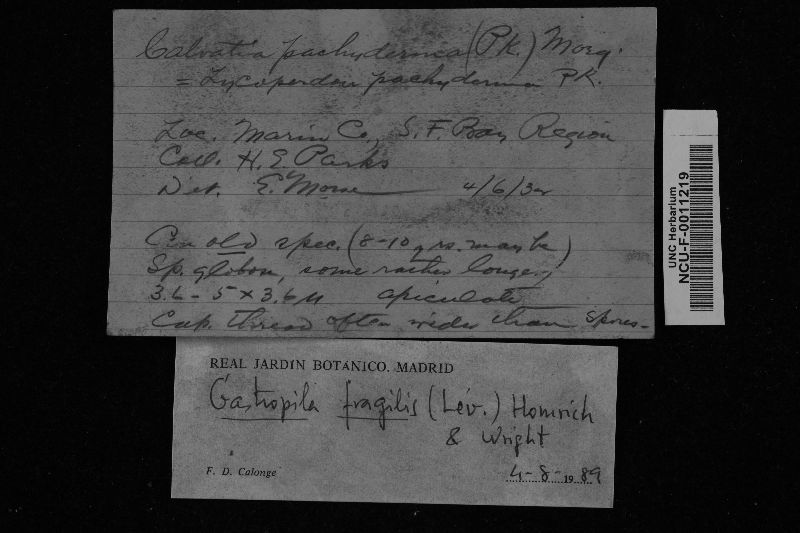 Calvatia pachyderma (Pk.) Morg.
= Lycoperdon pachyderma Pk.
Loc. Marin Co., S. F. Bay Region
Coll. H. E. Parks
Det. E. Morse 4/6/32
An old spec. (8-10 yrs. maybe)
Sp. globose, some rather longer,
3.6 - 5 x 3.6 µ apiculate
Cap. thread often wider than spores -
UNC Herbarium
NCU-F-0011219
REAL JARDIN BOTANICO. MADRID
Gastropila fragilis (Lév.) Homrich
& Wright
F. D. Calonge 4-8-1989